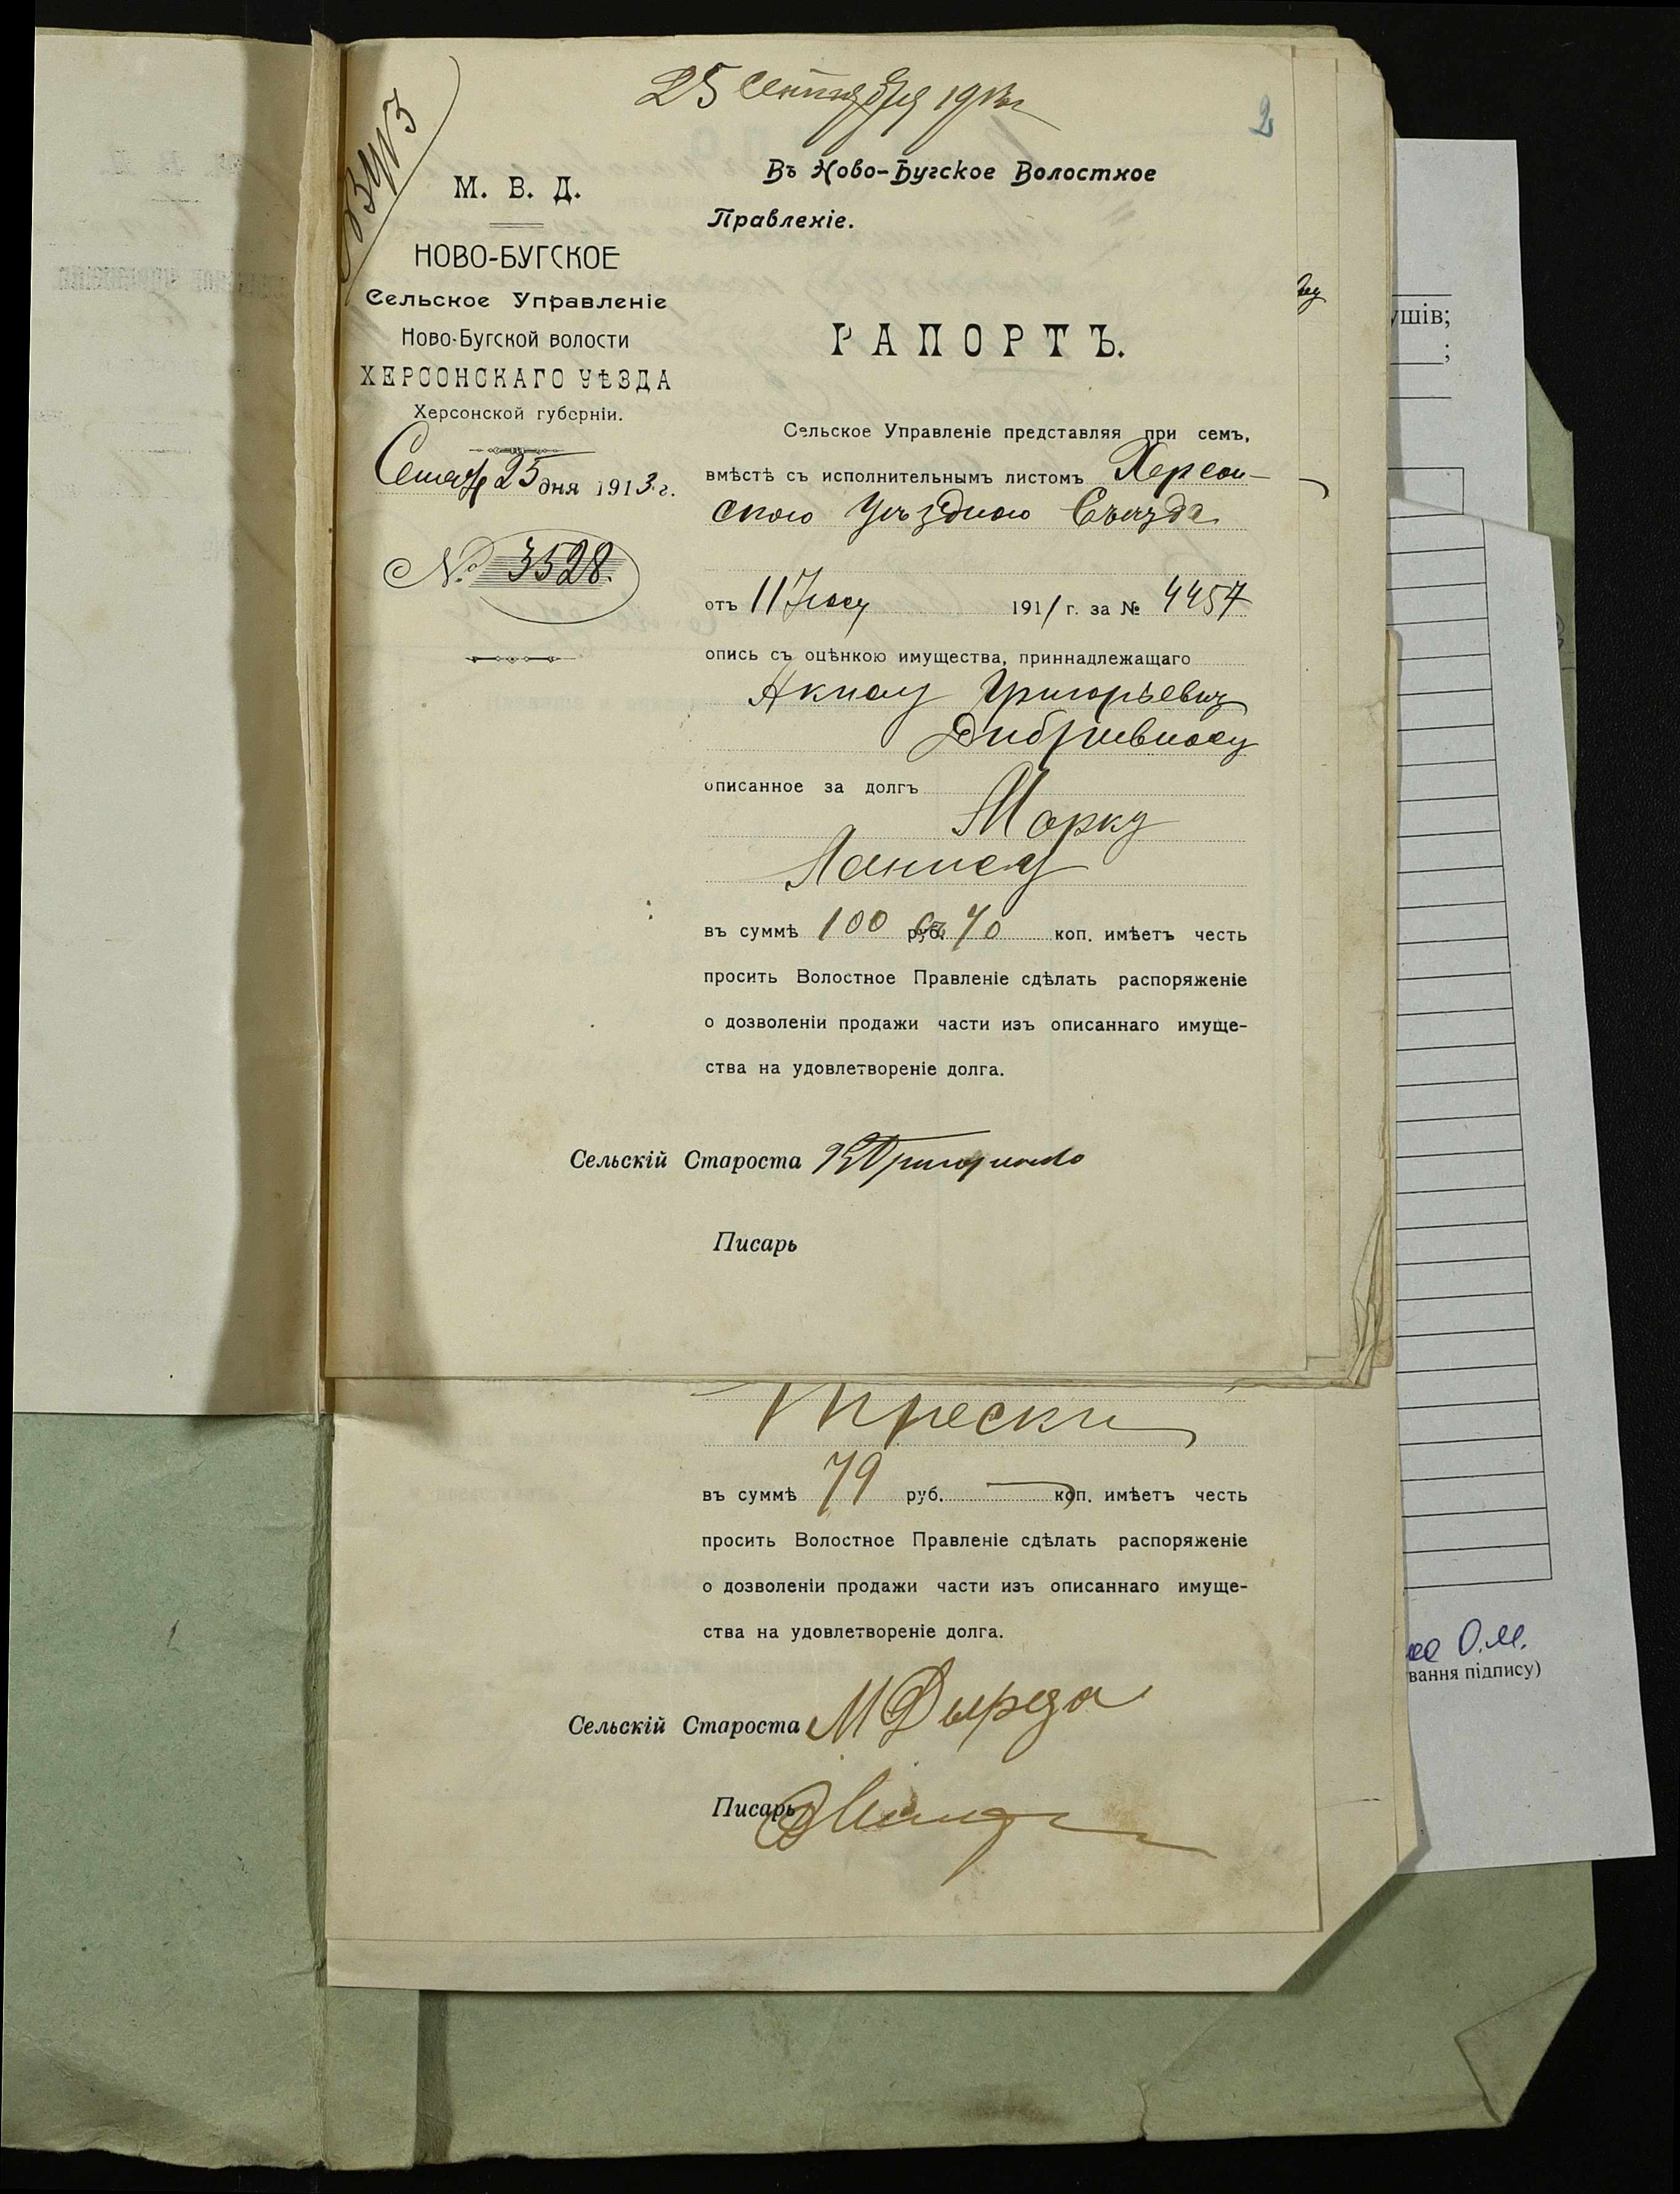 25 Сентября 1913 г
2
В. 4913
М. В. Д.
НОВО-БУГСКОЕ
Сельское Управленіе
Ново-Бугской волости
ХЕРСОНСКАГО УѢЗДА
Херсонской губерніи.
25 дня 1913 г.
№ 3528.
Въ Ново-Бугское Волостное
Правленіе.
РАПОРТЪ.
Сельское Управленіе представляя при семъ,
вмѣстѣ съ исполнительнымъ листомъ Херсон-
ского Уѣздного Съѣзда
отъ 11 1911 г. за № 4457
опись съ оцѣнкою имущества, приннадлежащаго
Григорьевичу
описанное за долгъ
Марку
въ суммѣ 100 руб. 70 коп. имѣетъ честь
просить Волостное Правленіе сдѣлать распоряженіе
о дозволеніи продажи части изъ описаннаго имуще-
ства на удовлетвореніе долга.
Сельскій Староста
Писарь
въ суммѣ 79 руб. — коп. имѣетъ честь
просить Волостное Правленіе сдѣлать распоряженіе
о дозволеніи продажи части изъ описаннаго имуще-
ства на удовлетвореніе долга.
Сельскій Староста
Писарь
ушів;
;
О.М.
вання підпису)